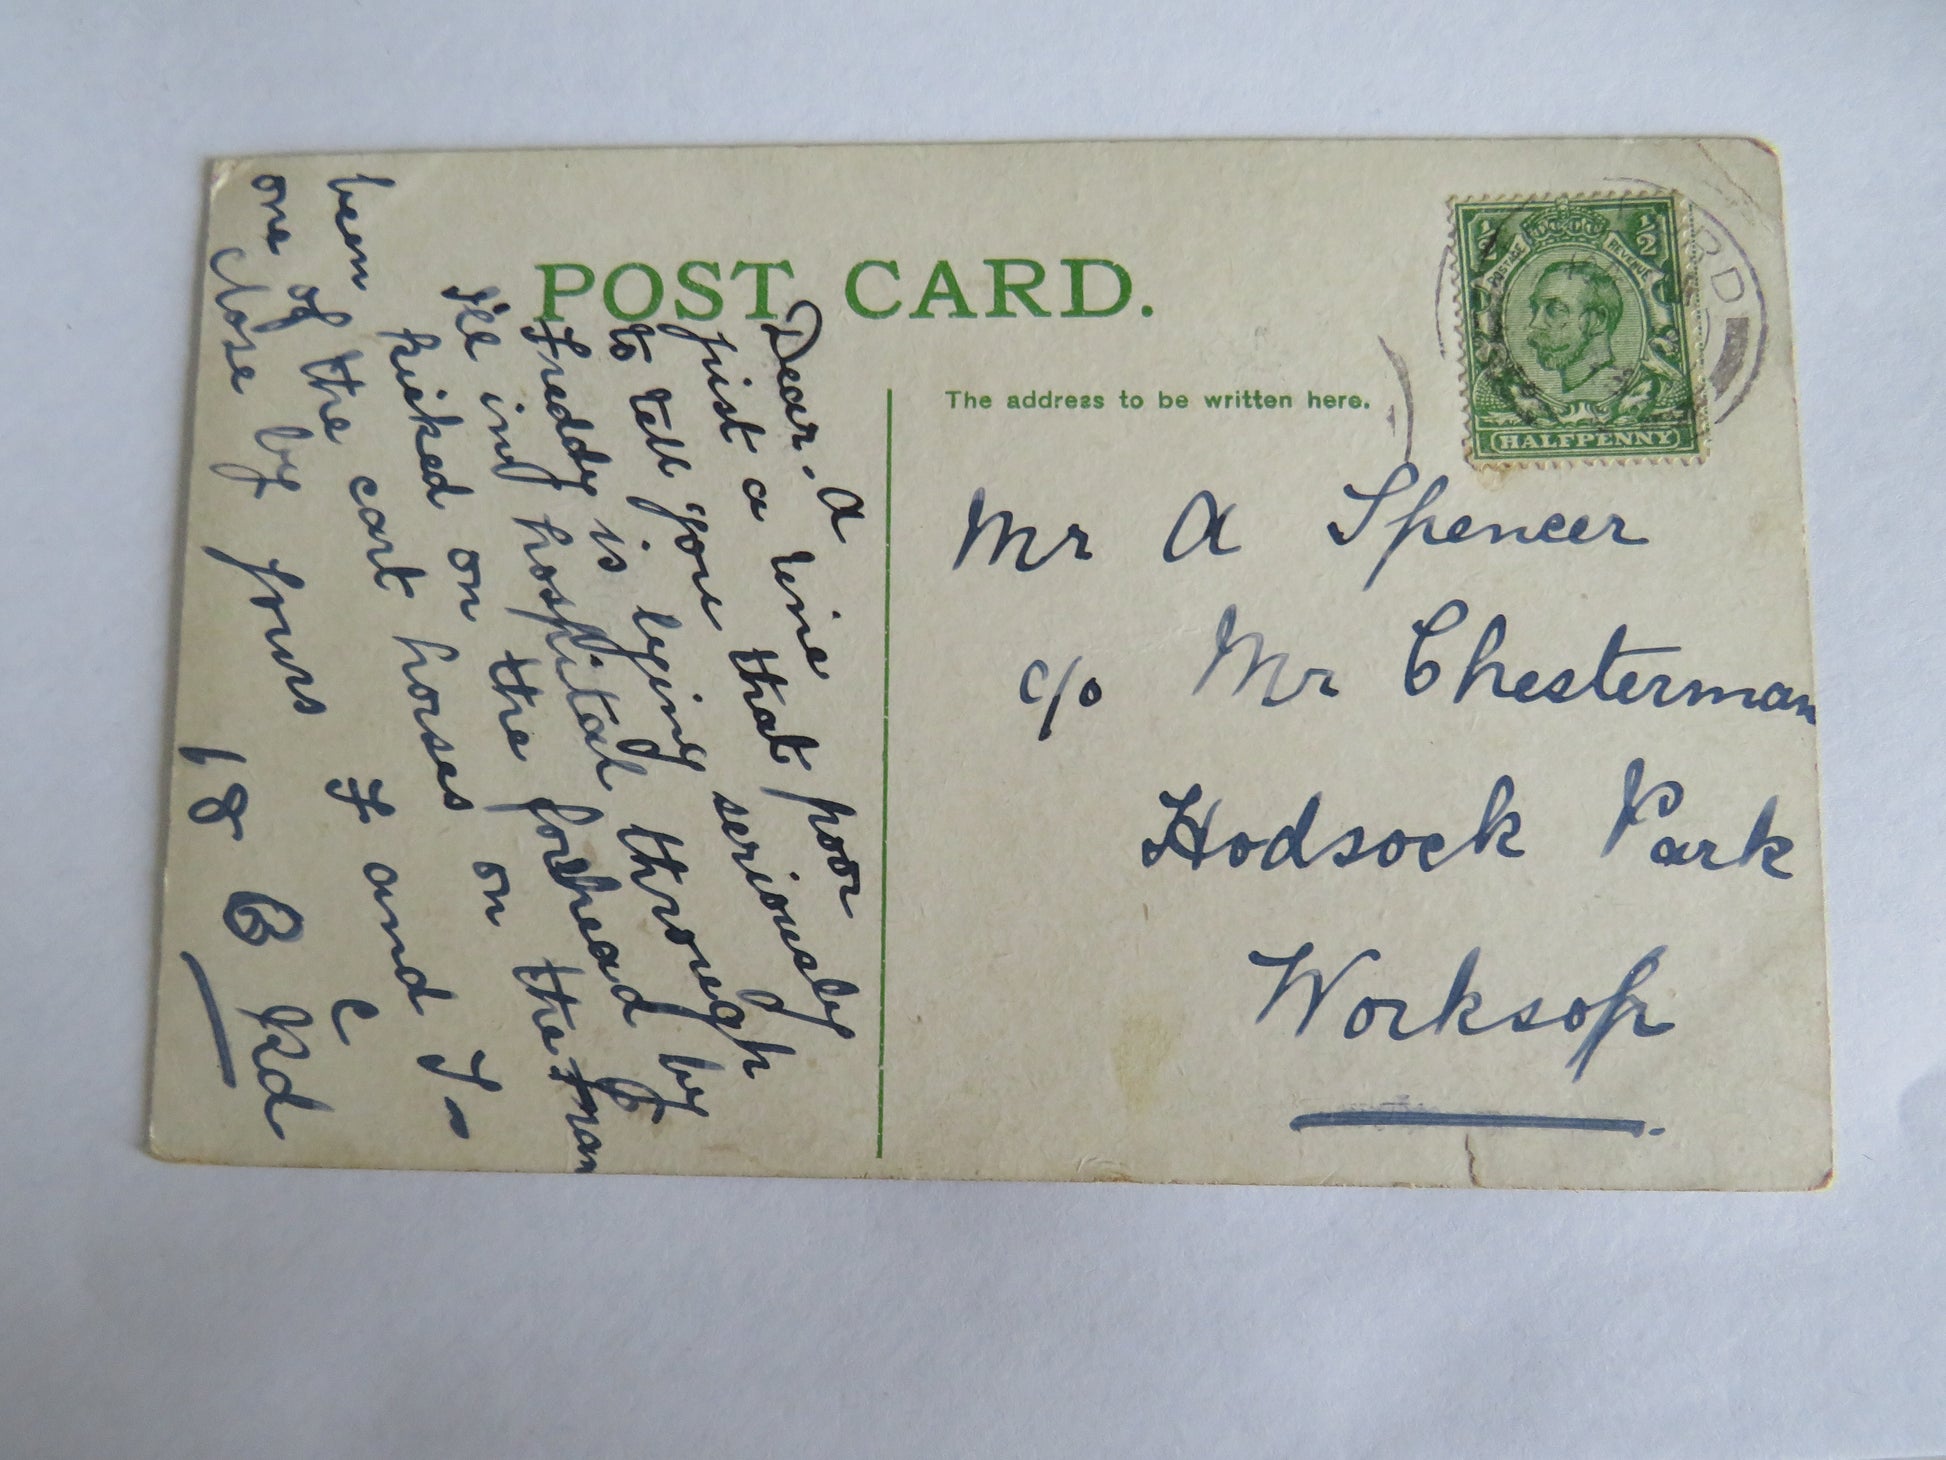 POST CARD.
The address to be written here.
½ ½
POSTAGE REVENUE
HALFPENNY
Mr A Spencer
c/o Mr Chesterman
Hodsock Park
Worksop
Dear. A
just a line
to tell you that poor
Freddy is lying seriously
ill in hospital through
been kicked on the forehead by
one of the cart horses on the
close by yours F and J-
18 B Rd